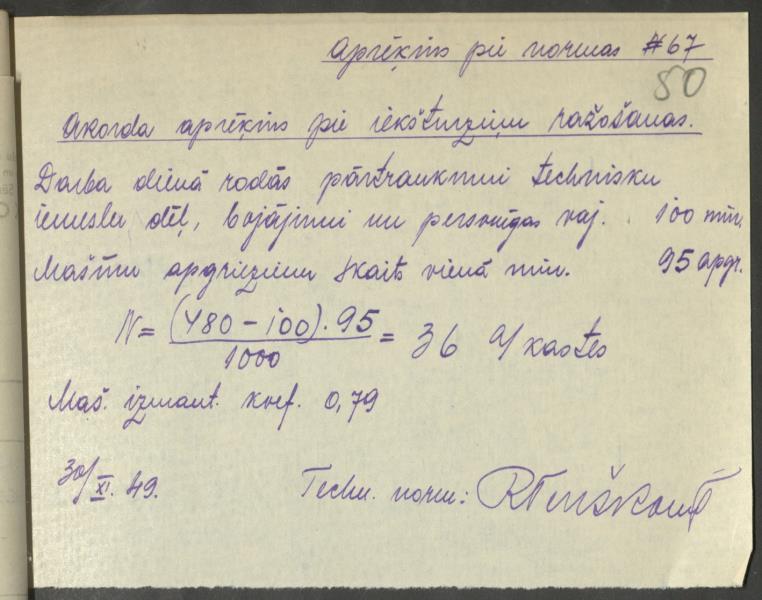 Aprēķins pie normas #67
50
Akorda aprēķins pie iekšturziņu ražošanas.
Darba dienā rodās pārtraukumi technisku
iemeslu dēļ, bojājumi un personīgas vaj. 100 min.
Mašīnu apgriezienu skaits vienā min. 95 apgr.
N = (480 - 100) . 95 / 1000 = 36 %kastes
Maš. izmant. koef. 0,79
30/XI. 49. Techn. norm: